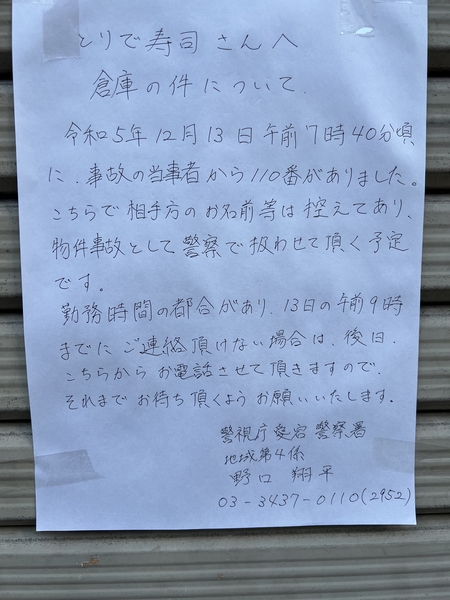 とりで寿司さんへ
倉庫の件について.
令和5年12月13日午前7時40分頃
に、事故の当事者から110番がありました。
こちらで相手方のお名前等は控えてあり、
物件事故として警察で扱わせて頂く予定
です。
勤務時間の都合があり、13日の午前9時
までにご連絡頂けない場合は、後日、
こちらからお電話させて頂きますので、
それまでお待ち頂くようお願いいたします。
警視庁愛宕警察署
地域第4係
野口翔平
03-3437-0110(2952)